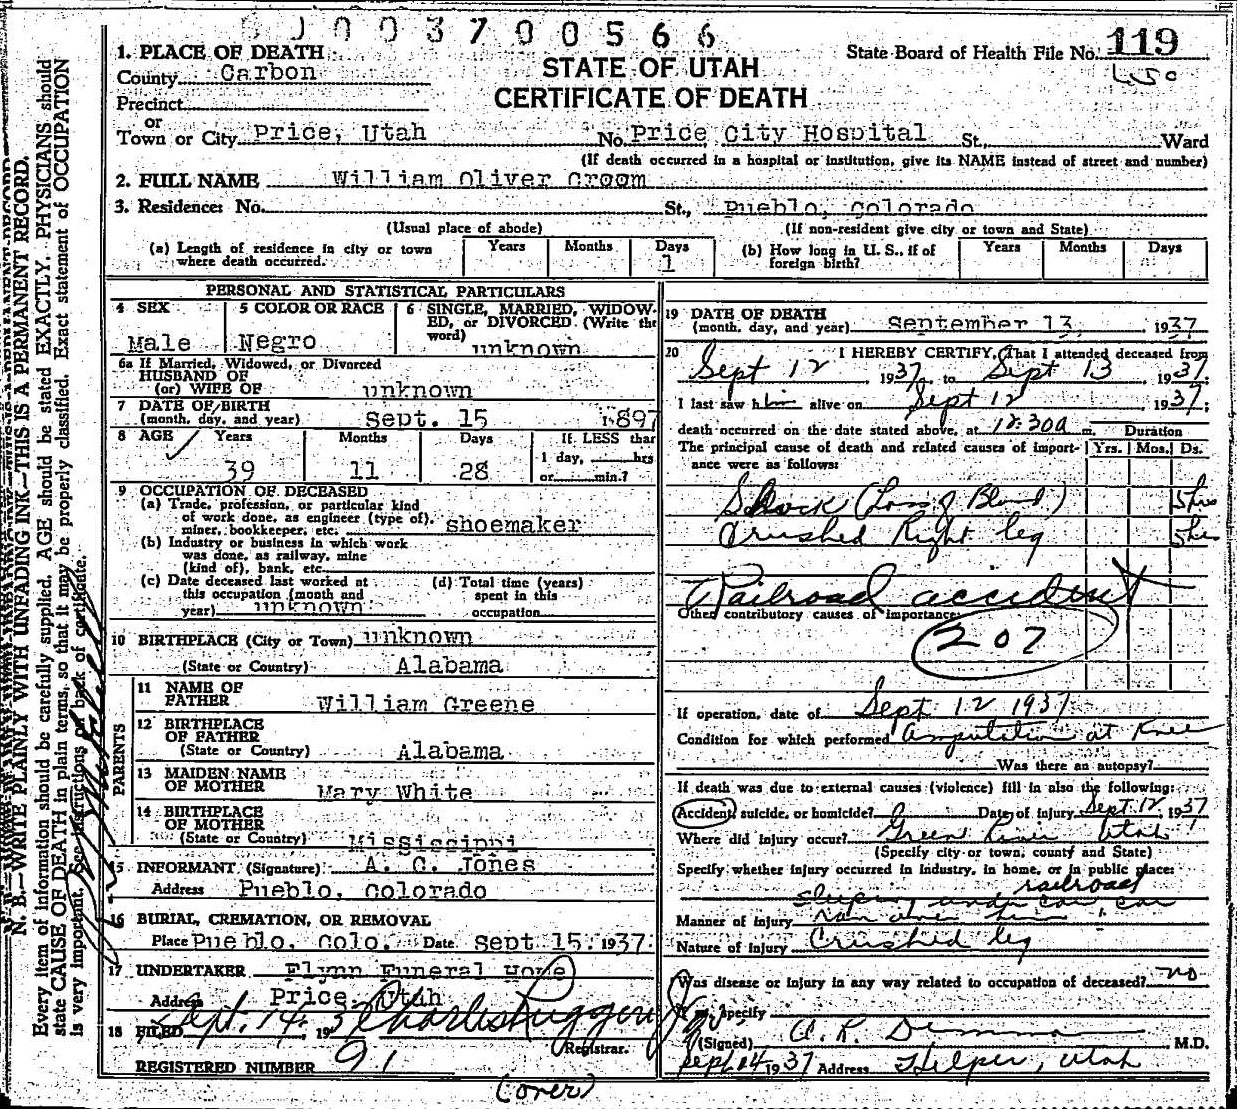 003700566
1. PLACE OF DEATH
County Carbon
Precinct
or
Town or City Price, Utah No. Price City Hospital St., Ward
STATE OF UTAH
CERTIFICATE OF DEATH
State Board of Health File No. 119
(If death occurred in a hospital or institution, give its NAME instead of street and number)
2. FULL NAME William Oliver Croom
3. Residence: No. St., Pueblo, Colorado
(Usual place of abode) (If non-resident give city or town and State)
(a) Length of residence in city or town where death occurred. Years Months Days 1
(b) How long in U. S., if of foreign birth? Years Months Days
PERSONAL AND STATISTICAL PARTICULARS
4 SEX Male
5 COLOR OR RACE Negro
6 SINGLE, MARRIED, WIDOWED, or DIVORCED (Write the word) unknown
6a If Married, Widowed, or Divorced
HUSBAND OF
(or) WIFE OF unknown
7 DATE OF BIRTH
(month, day, and year) Sept. 15 1897
8 AGE Years 39 Months 11 Days 28 If LESS than 1 day, hrs or min.?
9 OCCUPATION OF DECEASED
(a) Trade, profession, or particular kind
of work done, as engineer (type of),
miner, bookkeeper, etc. shoemaker
(b) Industry or business in which work
was done, as railway, mine
(kind of), bank, etc.
(c) Date deceased last worked at
this occupation (month and
year) unknown
(d) Total time (years)
spent in this
occupation
10 BIRTHPLACE (City or Town) unknown
(State or Country) Alabama
PARENTS
11 NAME OF
FATHER William Greene
12 BIRTHPLACE
OF FATHER
(State or Country) Alabama
13 MAIDEN NAME
OF MOTHER Mary White
14 BIRTHPLACE
OF MOTHER
(State or Country) Mississippi
15 INFORMANT (Signature) A. C. Jones
Address Pueblo, Colorado
16 BURIAL, CREMATION, OR REMOVAL
Place Pueblo, Colo. Date Sept 15, 1937
17 UNDERTAKER Flynn Funeral Home
Address Price, Utah
18 FILED Sept. 14, 193
Registrar.
REGISTERED NUMBER 91
(over)
19 DATE OF DEATH
(month, day, and year) September 13, 1937
20 I HEREBY CERTIFY, That I attended deceased from
Sept 12 1937, to Sept 13, 1937;
I last saw him alive on Sept 12, 1937;
death occurred on the date stated above, at 12:30a m. Duration
The principal cause of death and related causes of importance were as follows: Yrs. Mos. Ds.
Shock (Loss of Blood) 5 hrs
Crushed Right leg 5 hrs
Railroad accident
Other contributory causes of importance:
207
If operation, date of Sept 12 1937
Condition for which performed Amputation at Knee
Was there an autopsy?
If death was due to external causes (violence) fill in also the following:
Accident, suicide, or homicide? Date of injury Sept 12, 1937
Where did injury occur? Green River Utah
(Specify city or town, county and State)
Specify whether injury occurred in industry, in home, or in public place:
railroad
sleeping under car car
Manner of injury ran over him
Nature of injury Crushed leg
Was disease or injury in any way related to occupation of deceased? no
If so, specify
(Signed) M.D.
Sept 14 1937 Address Helper, Utah
N. B.—WRITE PLAINLY WITH UNFADING INK—THIS IS A PERMANENT RECORD.
Every item of information should be carefully supplied. AGE should be stated EXACTLY. PHYSICIANS should
state CAUSE OF DEATH in plain terms, so that it may be properly classified. Exact statement of OCCUPATION
is very important. See instructions on back of certificate.